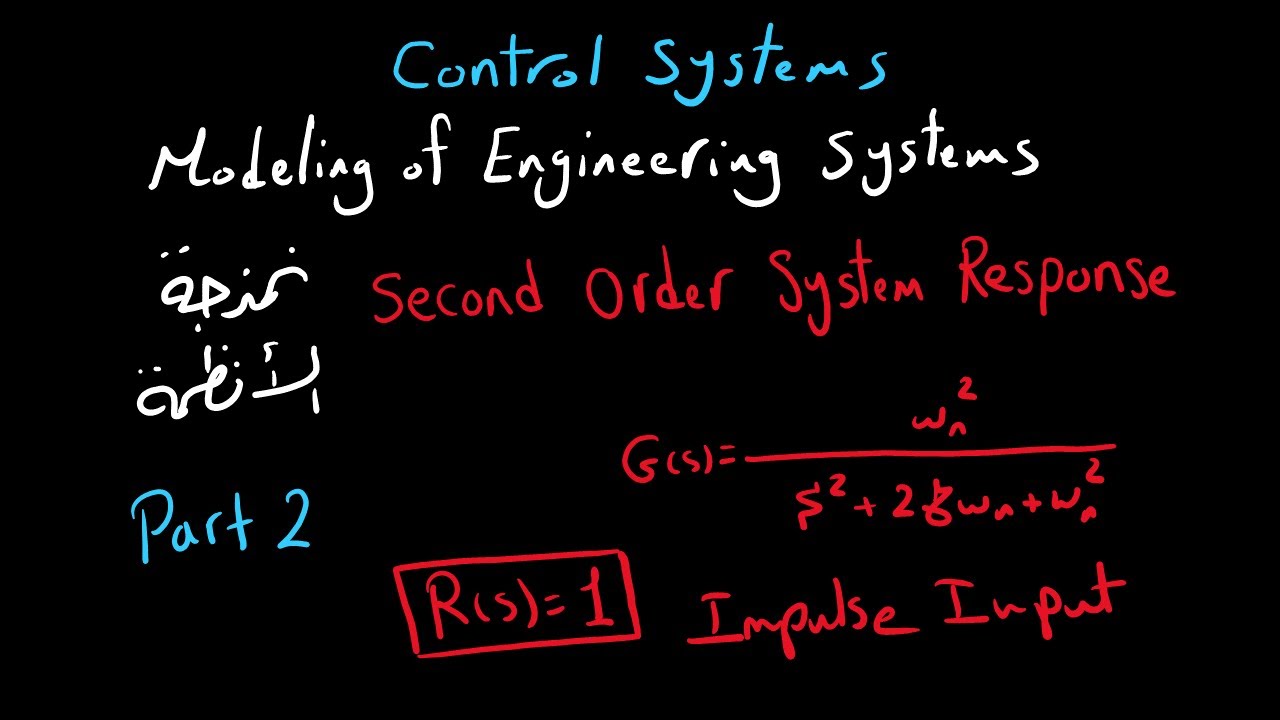 Control Systems
Modeling of Engineering Systems
نمذجة
الأنظمة
Second Order System Response
G(s) = ωₙ² / s² + 2ξωₙ + ωₙ²
Part 2
R(s) = 1
Impulse Input